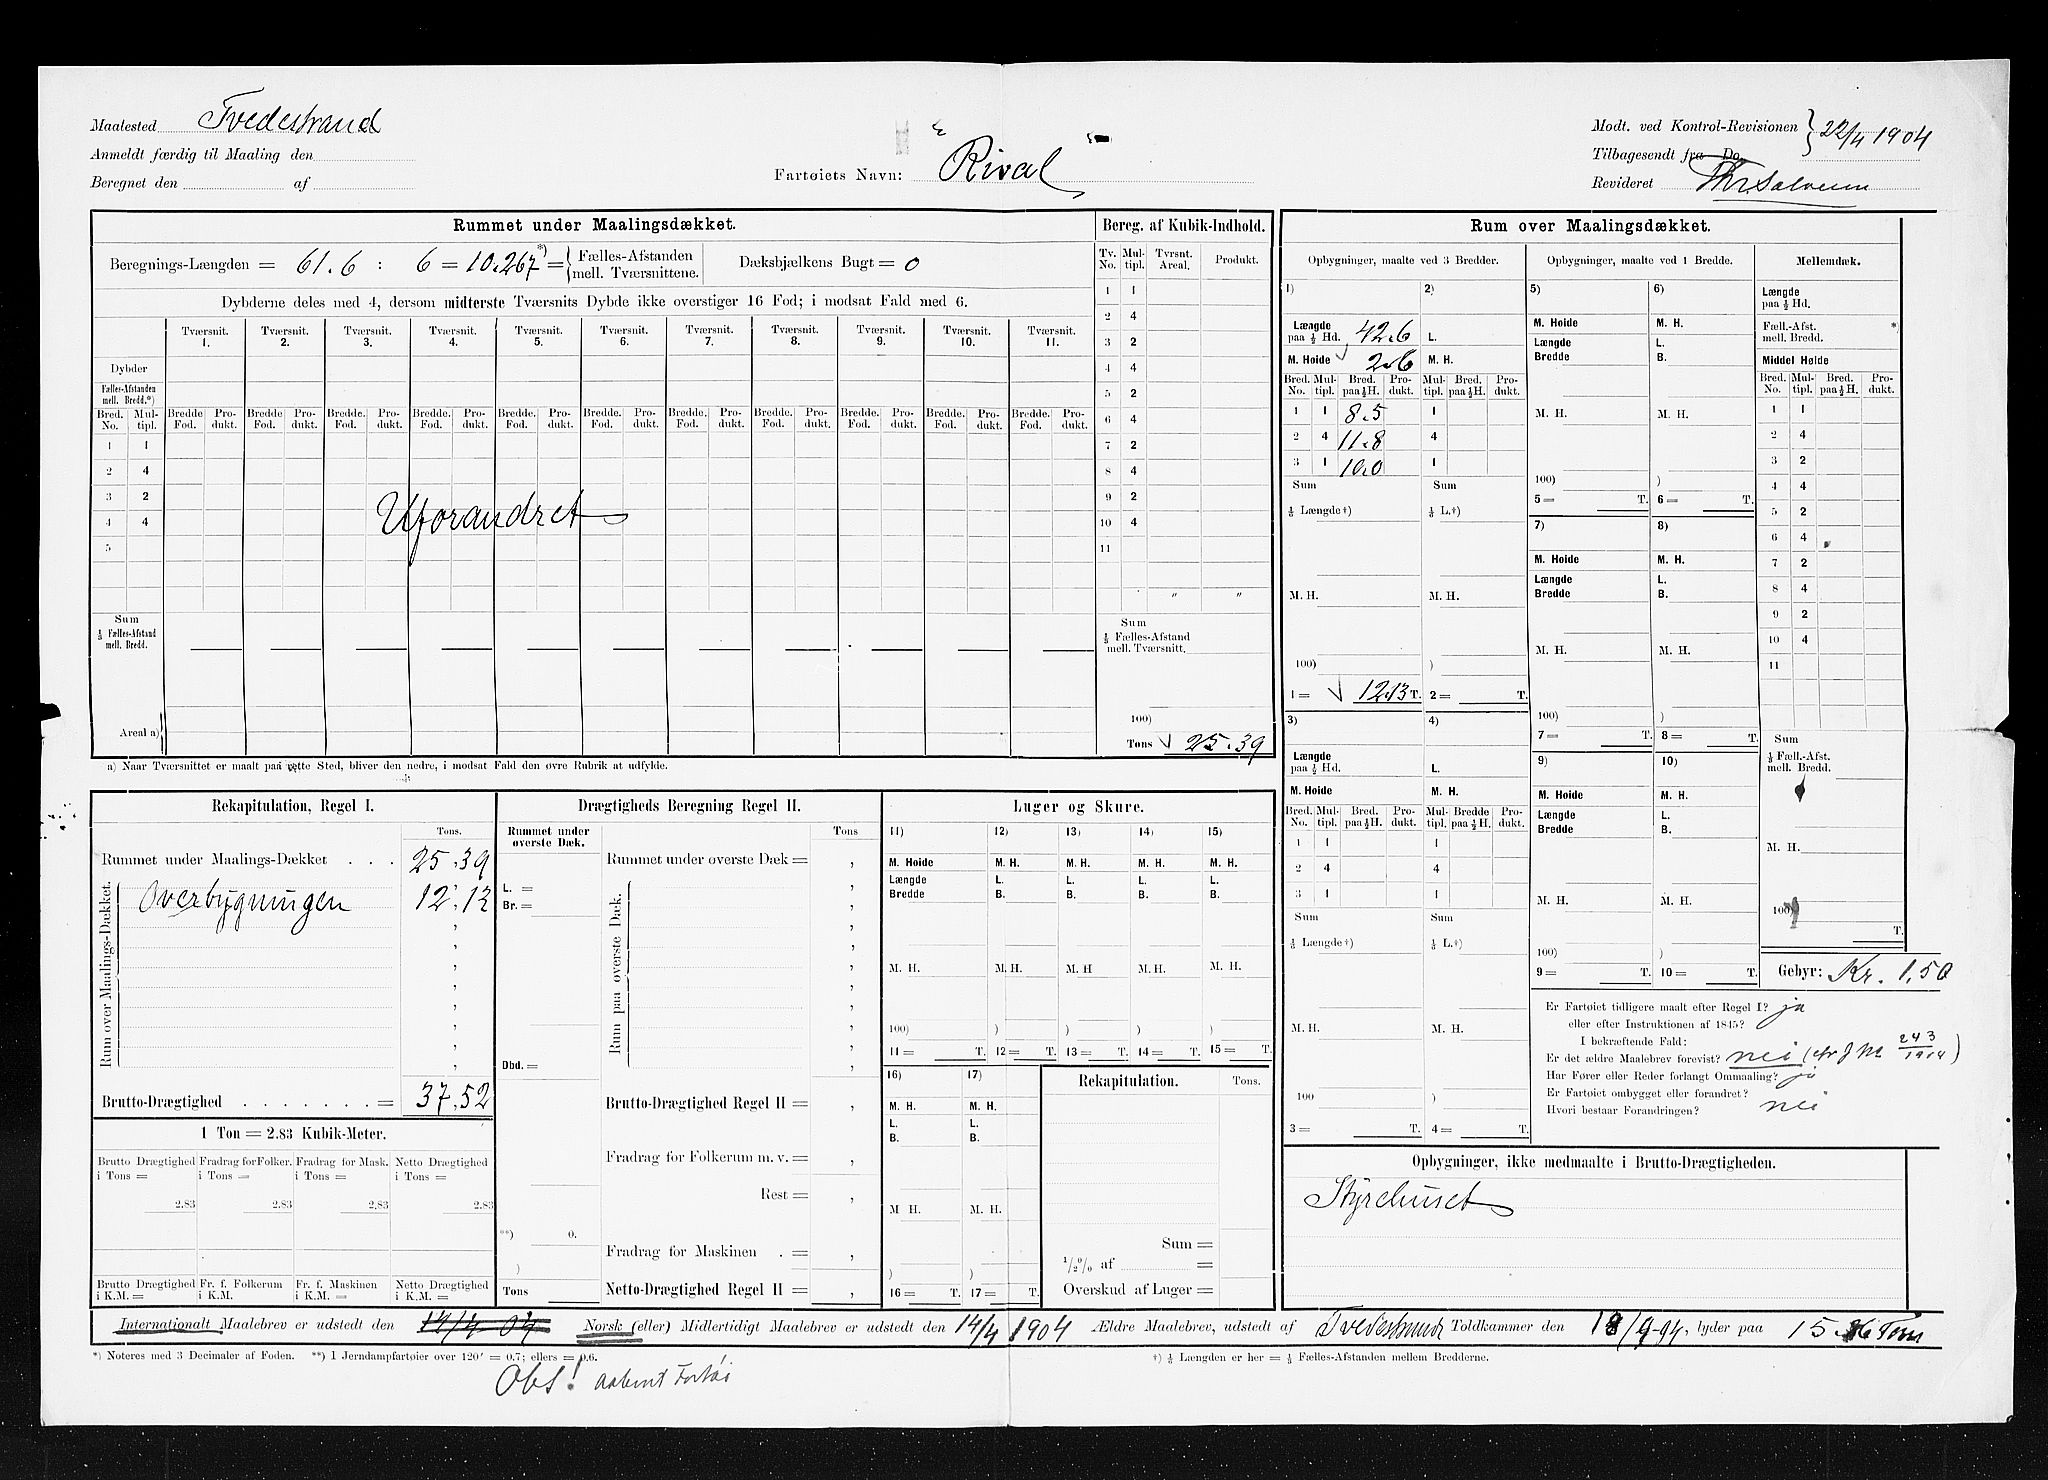 Maalested Tvedestrand
Anmeldt færdig til Maaling den
Beregnet den af
Fartøiets Navn: "Rival"
Modt. ved Kontrol-Revisionen } 22/4 1904
Tilbagesendt fra Do.
Revideret
Rummet under Maalingsdækket.
Beregnings-Længden = 61.6 : 6 = 10.267 *) = { Fælles-Afstanden mell. Tværsnittene.
Dæksbjælkens Bugt = 0
Dybderne deles med 4, dersom midterste Tværsnits Dybde ikke overstiger 16 Fod; i modsat Fald med 6.
Tværsnit. 1. Tværsnit. 2. Tværsnit. 3. Tværsnit. 4. Tværsnit. 5. Tværsnit. 6. Tværsnit. 7. Tværsnit. 8. Tværsnit. 9. Tværsnit. 10. Tværsnit. 11.
Dybder
Fælles-Afstanden mell. Bredd.*)
Bred. No. Multipl. Bredde Fod. Produkt. Bredde Fod. Produkt. Bredde. Fod. Produkt. Bredde. Fod. Produkt. Bredde. Fod. Produkt. Bredde. Fod. Produkt. Bredde. Fod. Produkt. Bredde. Fod. Produkt. Bredde. Fod. Produkt. Bredde. Fod. Produkt. Bredde. Fod. Produkt.
1 1
2 4
3 2
4 4
5
Uforandret
Sum
⅓ Fælles-Afstand mell. Bredd.
Areal a)
a) Naar Tværsnittet er maalt paa dette Sted, bliver den nedre, i modsat Fald den øvre Rubrik at udfylde.
Bereg. af Kubik-Indhold.
Tv. No. Multipl. Tvrsnt. Areal. Produkt.
1 1
2 4
3 2
4 4
5 2
6 4
7 2
8 4
9 2
10 4
11
" "
Sum
⅓ Fælles-Afstand mell. Tværsnitt.
100)
Tons 25.39
Rum over Maalingsdækket.
Opbygninger, maalte ved 3 Bredder.
1) 2)
Længde paa ½ Hd. 42.6 L.
M. Hoide 2.6 M. H.
Bred. No. Multipl. Bred. paa ½ H. Produkt. Multipl. Bred. paa ½ H. Produkt.
1 1 8.5 1
2 4 11.8 4
3 1 10.0 1
Sum Sum
⅓ Længde †) ⅓ L.†)
M. H. M. H.
100) )
1 = 12.13 T. 2 = T.
3) 4)
Længde paa ½ Hd. L.
M. Hoide M. H.
Bred. No. Multipl. Bred. paa ½ H. Produkt. Multipl. Bredde paa ½ H. Produkt.
1 1 1
2 4 4
3 1 1
Sum Sum
⅓ Længde †) ⅓ L.†)
M. H. M. H.
100 )
3 = T. 4 = T.
Opbygninger, maalte ved 1 Bredde.
5) 6)
M. Hoide M. H.
Længde L.
Bredde B.
M. H. M. H.
100) )
5 = T. 6 = T.
7) 8)
M. Hoide M. H.
Længde L.
Bredde B.
M. H. M. H.
100) )
7 = T. 8 = T.
9) 10)
M. Hoide M. H.
Længde L.
Bredde B.
M. H. M. H.
100) )
9 = T. 10 = T.
Mellemdæk.
Længde paa ½ Hd.
Fæll.-Afst. mell. Bredd. *)
Middel Høide
Bred. No. Multipl. Bred. paa ½ H. Produkt.
1 1
2 4
3 2
4 4
5 2
6 4
7 2
8 4
9 2
10 4
11
Sum
⅓ Fæll.-Afst. mell. Bredd.
M. H.
100)
T.
Gebyr: Kr. 1,50
Er Fartøiet tidligere maalt efter Regel I? ja
eller efter Instruktionen af 1845?
I bekræftende Fald:
Er det ældre Maalebrev forevist? nei (cfr J No 243/1904)
Har Fører eller Reder forlangt Ommaaling? ja
Er Fartøiet ombygget eller forandret? nei
Hvori bestaar Forandringen?
Opbygninger, ikke medmaalte i Brutto-Drægtigheden.
Styrehuset
Rekapitulation, Regel I.
Tons.
Rummet under Maalings-Dækket . . . 25.39
Rum over Maalings-Dækket.
Overbygningen 12.13
Brutto-Drægtighed . . . . . . . = 37.52
1 Ton = 2.83 Kubik-Meter.
Brutto Drægtighed i Tons = Fradrag for Folker. i Tons = Fradrag for Mask. i Tons = Netto Drægtighed i Tons =
2.83 2.83 2.83 2.83
Brutto Drægtighed i K.M. = Fr. f. Folkerum i K.M. Fr. f. Maskinen i K.M. = Netto Drægtighed i K.M.
Drægtigheds Beregning Regel II.
Rummet under øverste Dæk. Tons
Rummet under øverste Dæk =
L. =
Br. =
Rum paa øverste Dæk.
Dbd. =
Brutto-Drægtighed Regel II =
Fradrag for Folkerum m. v. =
Rest =
**) 0.
Fradrag for Maskinen . =
)
Tons Netto-Drægtighed Regel II =
Luger og Skure.
11) 12) 13) 14) 15)
M. Hoide M. H. M. H. M. H. M. H.
Længde L. L. L. L.
Bredde B. B. B. B.
M. H. M. H. M. H M. H. M. H.
100) ) ) ) )
11 = T. 12 = T. 13 = T. 14 = T. 15 = T.
16) 17)
M. H. M. H.
L. L.
B. B.
M H. M. H.
) )
16 = T. 17 = T.
Rekapitulation. Tons.
Sum =
½% af =
Overskud af Luger =
Internationalt Maalebrev er udstedt den 14/4 04 Norsk (eller) Midlertidigt Maalebrev er udstedt den 14/4 1904 Ældre Maalebrev, udstedt af Tvedestrand Toldkammer den 18/9-94, lyder paa 15.86 Tons
*) Noteres med 3 Decimaler af Foden. **) I Jerndampfartøier over 120' = 0.7; ellers = 0.6.
†) ⅓ Længden er her = ⅓ Fælles-Afstanden mellem Bredderne.
Obs! aabent Fartøi